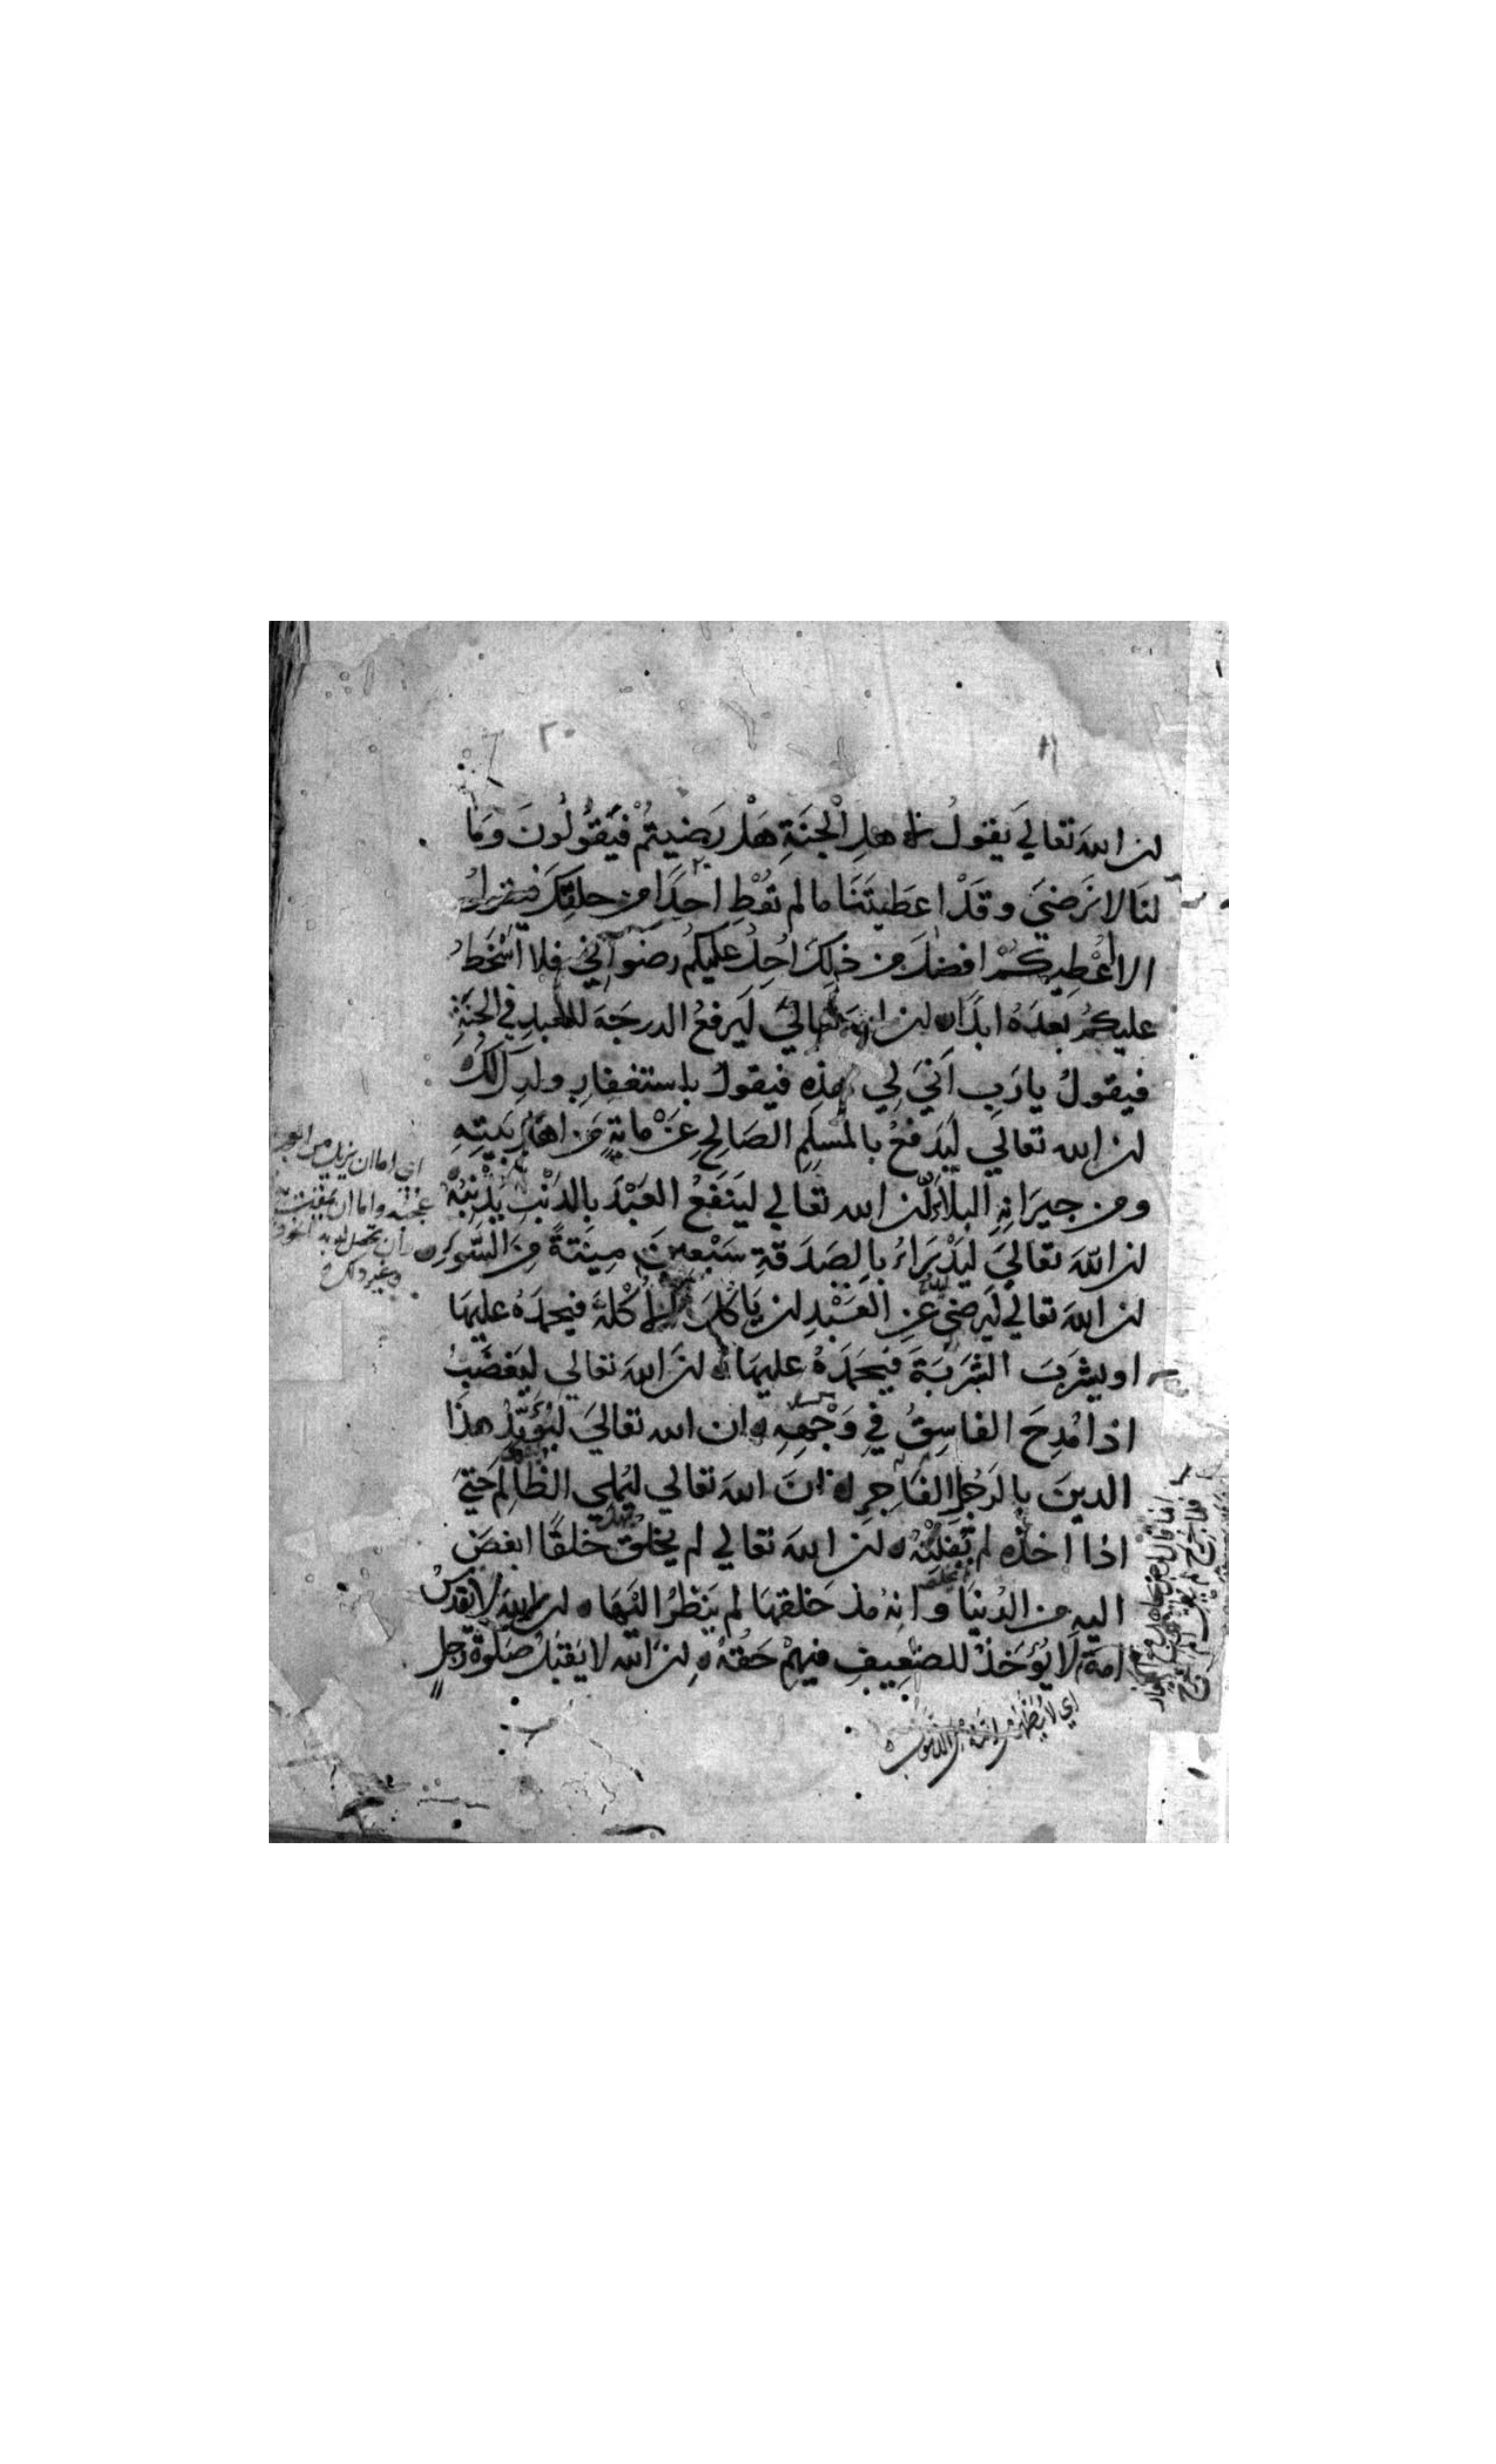 ٢٠
ان الله تعالي يقولُ لاهلِ الْجنَةِ هَلْ رَضيتُمْ فَيَقُولُونَ وَمَا
لنَا لا نَرَضيَ وقَدْ اعَطيتَنَا مالم تُعْطِ احَدًا من خلقِكَ فيقولُ
الا اعْطِيكُمْ افضلَ من ذَلِكَ احِلُ عليكُم رضوَانِي فلا اسْخَطُ
عليكُمْ بعدَهُ ابدًا ان الله تعاليَ لَيَرفعُ الدرجَةَ للعبدِ في الجنَةِ
فيقولُ يارَبِ اَنيَ لِي هذِهِ فيقولُ باستغفارِ ولدِكَ لَكَ
ان الله تعالَي لَيَدفعُ بالمُسلِمِ الصَالحِ عَنْ مايةٍ مِن اهلِ بَيتِهِ
ومن جيرَانِهِ البلَاءَ ان الله تعالي لينَفعُ العَبْدَ بالذَنْبِ يُذْنِبُهُ
ان اللهَ تعالَيَ لَيَدْرَاءُ بالصَدَقةِ سَبْعينَ مِيتَةً مِنَ السُوءِ
ان اللهَ تعالي لَيرضي عَنِ العَبْدِ ان يَاكُلَ الاَكْلَةَ فيحمدَهُ عليهَا
او يشرَبَ الشَرَبَةَ فَيَحمَدَهُ عليهَا انَ اللهَ تعالي ليَغضَبُ
اذا مُدِحَ الفاسِقُ فِي وَجْهِهِ ان الله تعاليَ ليُؤَيِّدُ هذَا
الدينَ بالرَجُلِ الفَاجِرِ انَ اللهَ تعالي ليُملِي الظَالِمَ حَتيَ
اذا اخذه لم يُفلِتْهُ ان اللهَ تعالي لم يخلق خلقًا ابغضَ
اليهِ من الدُنيَا وانهُ مذ خَلقهَا لم يَنظرُ اليَهَا ان الله لا يقدسُ
امةً لَا يُؤخَذُ للضعِيفِ فيهِمْ حَقهُ انَ الله لا يَقبَلُ صَلوةَ رجلٍ
اي اما ان يزيل من
عجبه واما ان
وان تحصل توبة
وغير ذلك